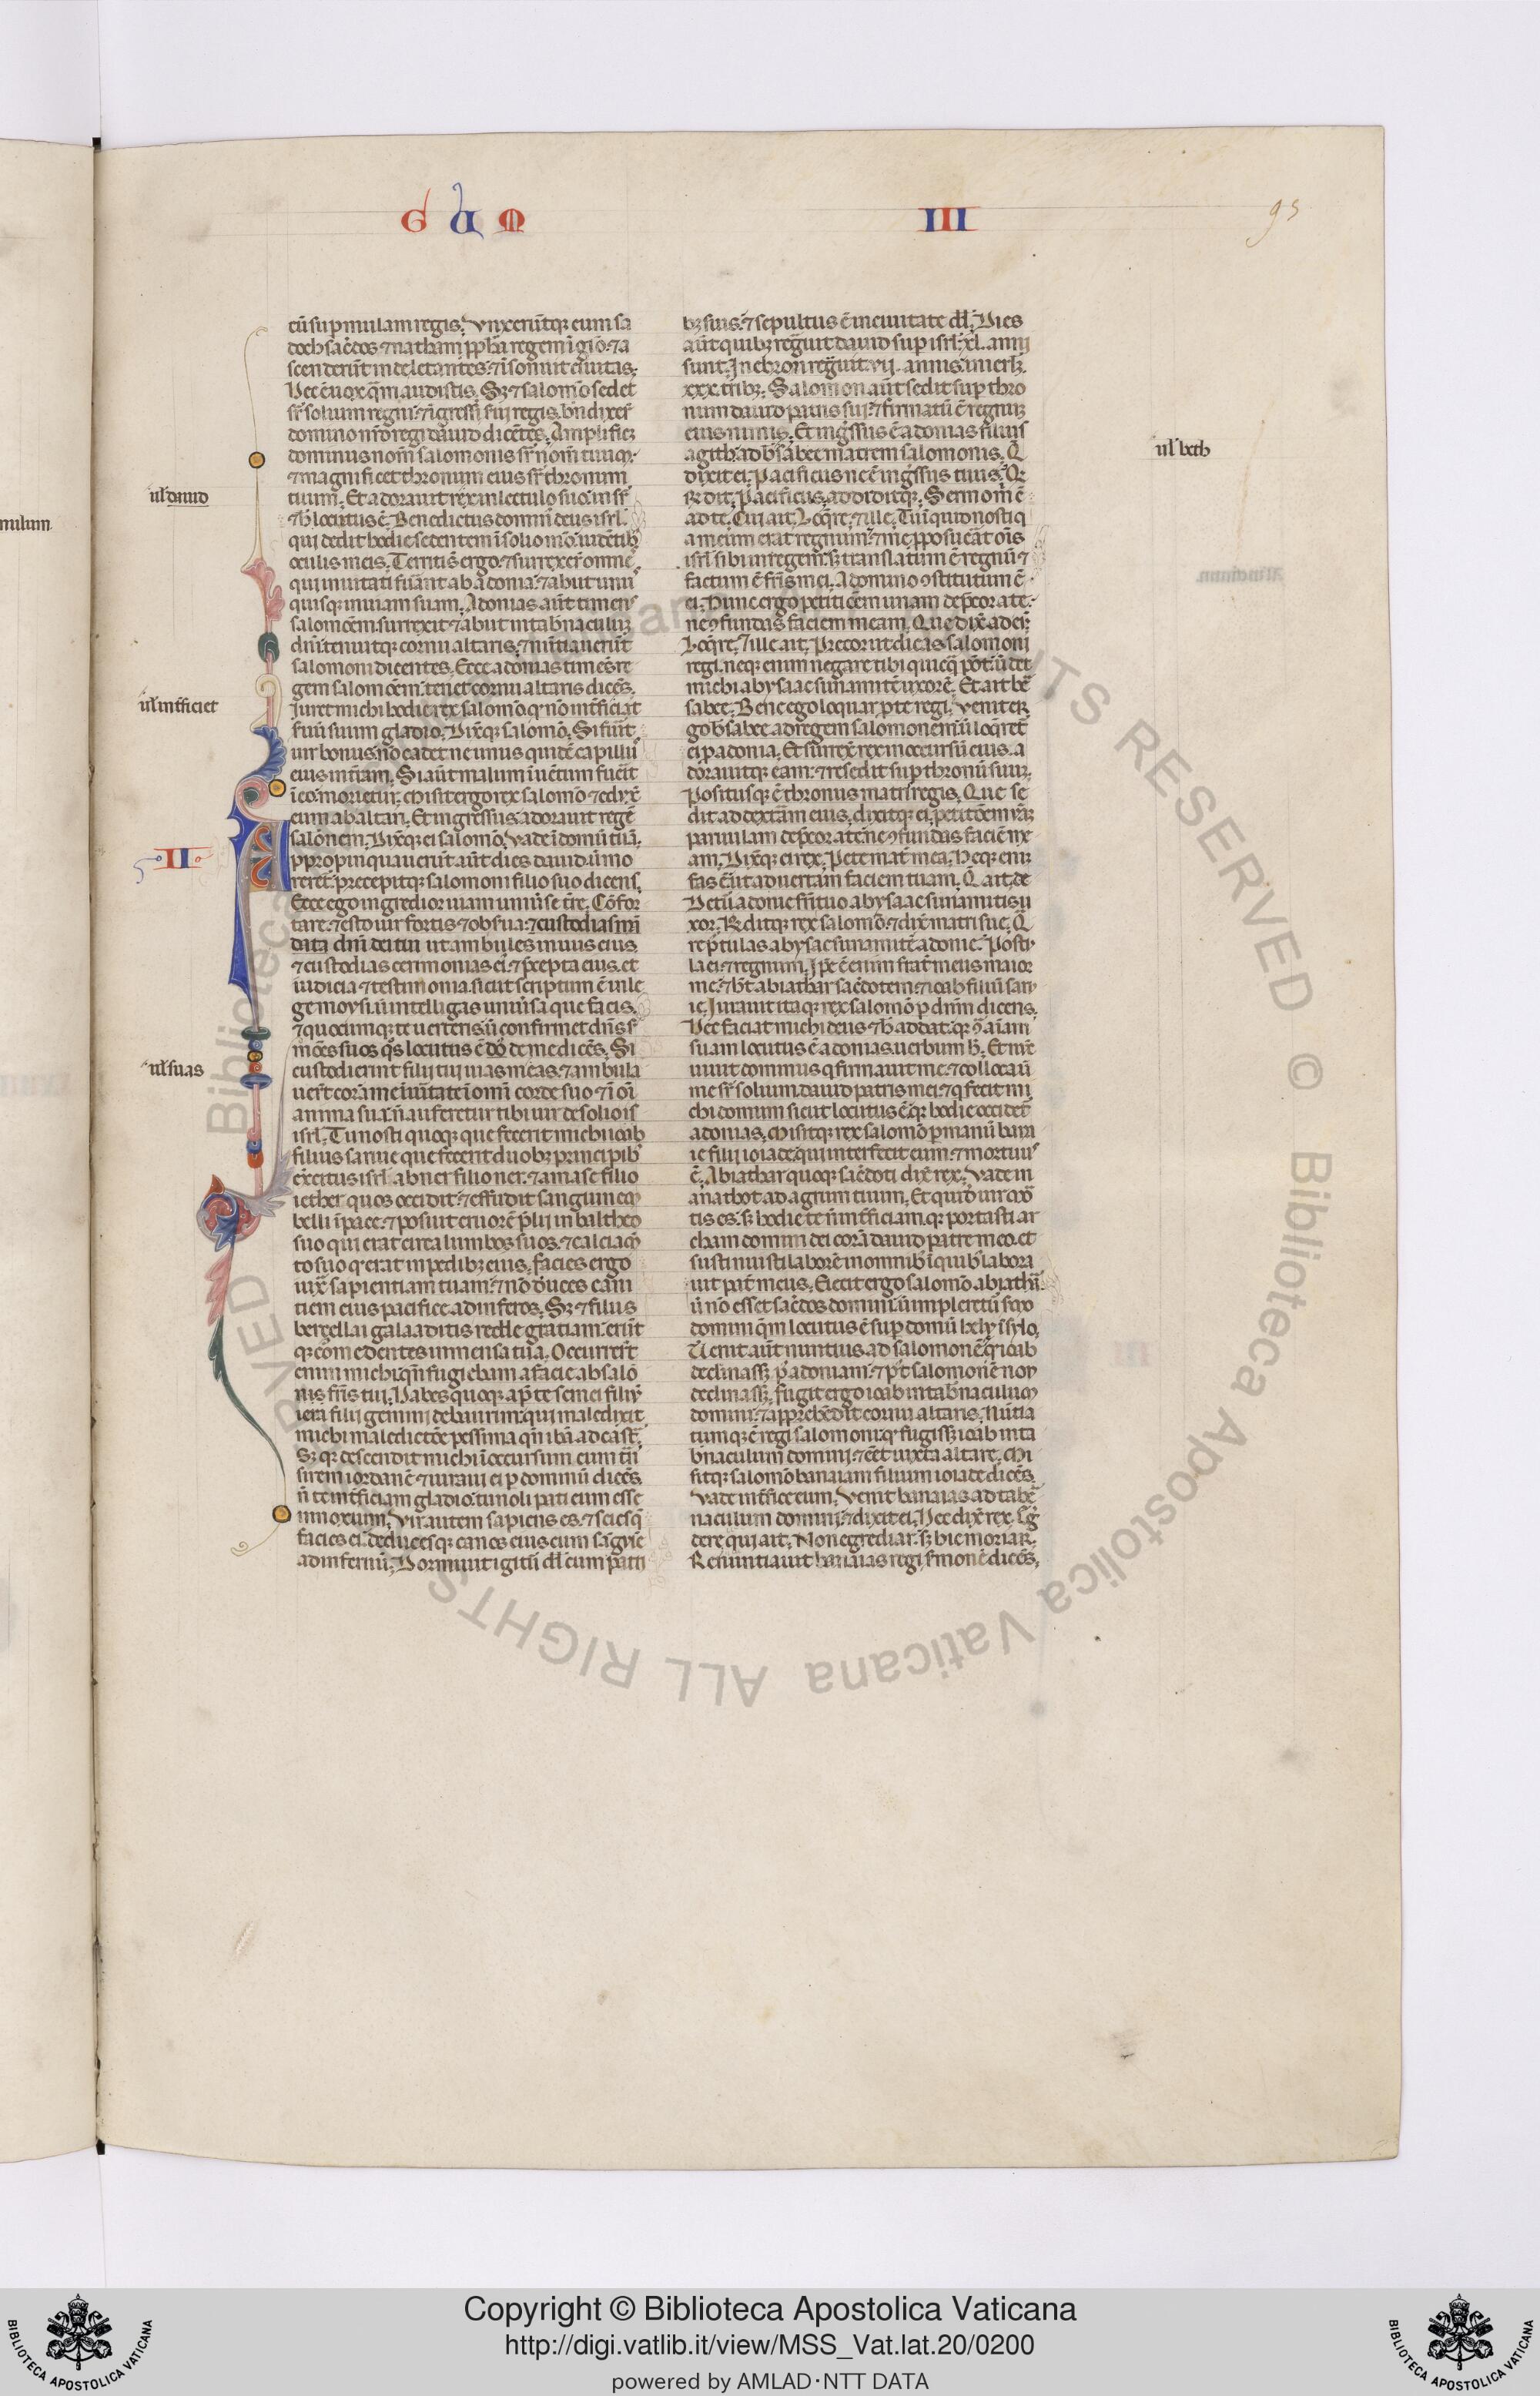 G U M
III
95
cū sup mulam regis. Vnxerūtqȝ eum sa
doch sac̄dos ⁊ nathan pp̄ha regem ī gion. ⁊ a
scenderūt inde letantes. ⁊ īsonuit ciuitas.
Hec ē uox qm̄ audistis. Sȝ ⁊ salomō sedet
sr̄ solium regni. ⁊ īgressi s̄ui regis. bn̄dixer̄
domino nr̄o regi dauid dicētes. Amplificȝ
dominus nom̄ salomonis sr̄ nom̄ tuum.
⁊ magnificet thronum eius sr̄ thronum
tuum. Et adorauit rex in lectulo suo. insr̄
⁊ h̄ locutus ē. Benedictus domin̄ deus isrl̄.
qui dedit hodie sedentem ī solio mō. uidētibȝ
oculis meis. Territi s̄ ergo. ⁊ surrexer̄ omnē
qui inuitati fu̅ant ab adonia. ⁊ abiit unu
quisqȝ in uiam suam. Adonias aūt timens
salomōem. surrexit ⁊ abiit in tab̄naculuȝ
dn̄i. tenuitqȝ cornu altaris. ⁊ nūtiauerūt
salomoni dicentes. Ecce adonias timēs re
gem salomōem. tenet cornu altaris dicēs.
Iuret michi hodie rex salomō. qȝ nō int̄ficiat
s̄uū suum gladio. Dix̄qȝ salomō. Si fūit
uir bonus. nō cadet ne unus quidē capillu
eius in t̄ram. Si aūt malum īuētum fuerit
ī eo. morietur. Misit ergo rex salomō ⁊ edux̄
eum ab altari. Et ingressus. adorauit regē
salōnem. Dix̄qȝ ei salomō. Vade ī domū tuā.
II
Appropinquauerūt aūt dies dauid. ū mo
reret̄. precepitqȝ salomoni filio suo dicens.
Ecce ego ingredior uiam uniūse t̄re. Cōfor
tare. ⁊ esto uir fortis ⁊ obs̄ua. ⁊ custodias mā
data dn̄i dei tui ut ambules in uiis eius.
⁊ custodias cerimonias ei. ⁊ p̄cepta eius. et
iudicia ⁊ testimonia. sicut scriptum ē in le
ge moysi. ū intelligas uniūsa que facis.
⁊ quocumqȝ te uerteris. ū confirmet dn̄s s̄
mōes suos qs̄ locutus ē dō de me dicēs. Si
custodierint filii tui uias meas. ⁊ ambula
uer̄t corā me ī ūitate ī omi̅ corde suo ⁊ ī oī
anima sua. n̄ auferetur tibi uir de solio is
isrl̄. Tu nosti quoqȝ que fecerit michi ioab
filius saruie que fecerit duobȝ principibȝ
ex̄citus isrl̄ abner filio ner. ⁊ amase filio
iether quos occidit. ⁊ effudit sanguinem
belli ī pace. ⁊ posuit cruorē p̄lii in baltheo
suo qui erat circa lumbos suos. ⁊ calciam̄
to suo qd̄ erat in pedibȝ eius. facies ergo
iux̄ sapientiam tuam. ⁊ nō dūces cani
tiem eius pacifice ad inferos. Sȝ ⁊ filiis
berçellai galaaditis reddes gratiam. erūt
qȝ comedentes in mensa tua. Occurrer̄t
enim michi. qn̄ fugiebam a facie absalo
nis fr̄is tui. Habes quoqȝ ap̄ te semei filiū
iera filii gemini de baurim. qui maledixit
michi maledictōe pessima qn̄ ibā ad castr̄.
Sȝ qȝ descendit michi ī occursum. cum t̄n
sirem iordanē ⁊ iuraui ei p̄ dominū dicēs.
n̄ te int̄ficiam gladio. tu noli pati eum esse
innoxium. Vir autem sapiens es. ⁊ scies q̄
facies ei. deducesqȝ canos eius cum sāgi̅e
ad infernū. Dormiuit igit̄ dd̄ cum patri
bȝ suis. ⁊ sepultus ē in ciuitate dd̄. Dies
aūt quibȝ regūit dauid sup isrl̄. xl. anni
sunt. In ebron regūit. vii. annis. in ierlȝ.
xxx. tribȝ. Salomon aūt sedit sup thro
num dauid patris sui. ⁊ firmatū ē regnuȝ
eius nimis. Et ingssus ē adonias filius
agith ad b̄sabee matrem salomonis. Q̄
dixit ei. Pacificus ne ē ingssus tuus. Q̄
R̄dit. Pacificus. addiditqȝ. Sermoni ē
ad te. Cui ait. Loq̄re. ⁊ ille. Tu inquid nosti q
a meum erat regnum. ⁊ me pposueāt oīs
isrl̄ sibi in regem. sȝ translatum ē regnū ⁊
factum ē fr̄is mei. A domino ꝯstitutum ē
ei. Nunc ergo petitiōem unam dep̄cor a te.
ne ꝯfundas faciem meam. Que dix̄ ad eū.
Loq̄re. ⁊ ille ait. Precor ut dicas salomoni
regi. neqȝ enim negare tibi quicq̄ pōt. ū det
michi abysaac sunamitē uxorē. Et ait b̄e
sabee. Bene ego loquar p̄ te regi. Venit er
go b̄sabee ad regem salomonem. ū loq̄ret̄
ei p̄ adonia. Et surrex̄ rex in occursū eius. a
dorauitqȝ eam. ⁊ resedit sup thronū suuȝ.
Positusqȝ ē thronus matri regis. Que se
dit ad dextam eius. dixitqȝ ei. petitōem unā
paruulam dep̄cor a te. ne ꝯfundas faciē me
am. Dix̄qȝ ei rex. Pete mat̄ mea. Neqȝ eniȝ
fas ē. ūt aduertam faciem tuam. Q̄ ait. de
Detur adonie fr̄i tuo abysaac sunamitis u
xor. R̄ditqȝ rex salomō. ⁊ dix̄ matri sue. Q̄
re p̄tulas abysac sunamitē adonie. Posti
la ei. ⁊ regnum. Ip̄e ē enim frat̄ meus maior
me. ⁊ h̄t abiathar sac̄dotem. ⁊ ioab filiū sar
ie. Iurauit itaqȝ rex salomō p̄ dn̄m dicens.
Hec faciat michi deus ⁊ h̄ addat. qȝ ꝯ aīam
suam locutus ē adonias uerbum h̄. Et nūc
uiuit dominus q firmauit me. ⁊ collocau̅
me sr̄ solium dauid patris mei. ⁊ q fecit mi
chi domum sicut locutus ē. qȝ hodie occidet̄
adonias. Misitqȝ rex salomō p̄ manū bana
ie filii ioiade. qui interfecit eum. ⁊ mortuus
ē. Abiathar quoqȝ sac̄doti dix̄ rex. Vade in
anathot ad agrum tuum. Et quid̄ uir mor
tis es. sȝ hodie te n̄ int̄ficiam. qȝ portasti ar
cham domini dei corā dauid patre meo. et
sustinuisti laborē in omnibȝ ī quibȝ labora
uit pat̄ meus. Eiecit ergo salomō abiathar
ū nō esset sac̄dos domini. ū impleretur̄ sermo
domini qm̄ locutus ē sup domū hely ī sylo.
Uenit aūt nuntius ad salomonē q̄ ioab
declinasset p̄ adoniam. ⁊ p̄t salomonē non
declinasset. fugit ergo ioab in tab̄naculum
domini. ⁊ apprehēdit cornu altaris. Nūtia
tumqȝ ē regi salomoni. qȝ fugisset ioab in ta
b̄naculum domini. ⁊ ēet iuxta altare. Mi
sitqȝ salomō banaiam filium ioiade dicēs.
Vade int̄fice eum. Venit banaias ad tab̄e
naculum domini. ⁊ dixit ei. Hec dix̄ rex. Eg̅
dere. qui ait. Non egrediar. sȝ hic moriar.
Renuntiauit banaias regi s̄monē dicēs.
ul̄ dauid
ul̄ int̄ficiet
ul̄ suas
ul̄ beth
mulum
Copyright © Biblioteca Apostolica Vaticana
http://digi.vatlib.it/view/MSS_Vat.lat.20/0200
powered by AMLAD·NTT DATA
BIBLIOTECA APOSTOLICA VATICANA
BIBLIOTECA APOSTOLICA VATICANA
© Biblioteca Apostolica Vaticana ALL RIGHTS RESERVED